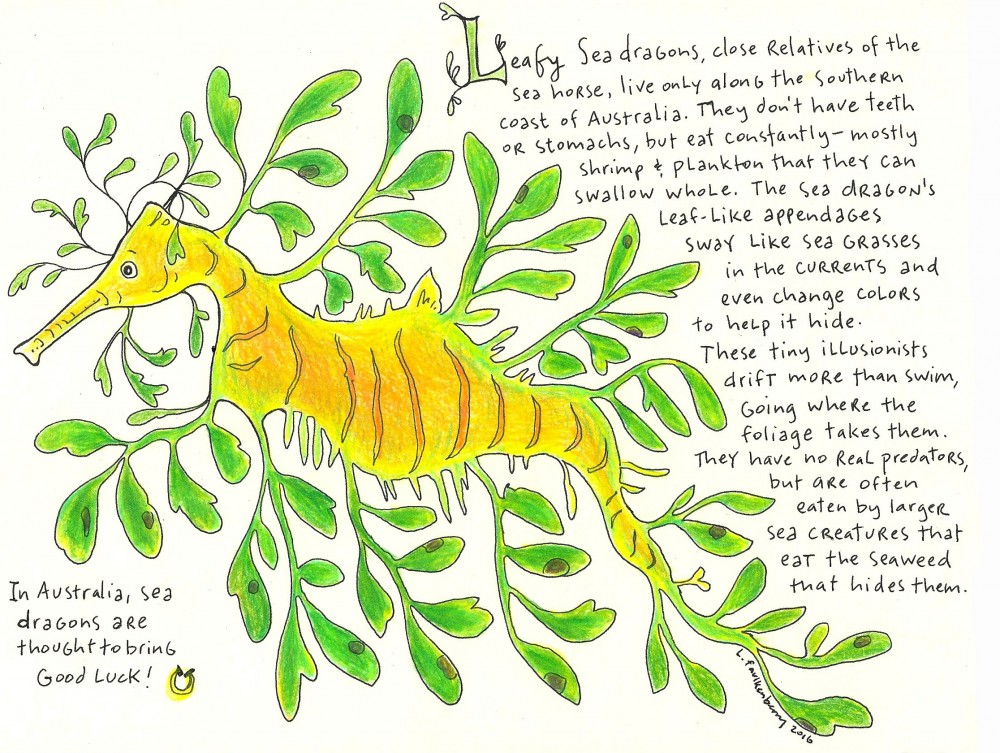 Leafy Sea dragons, close relatives of the
sea horse, live only along the southern
coast of Australia. They don't have teeth
or stomachs, but eat constantly — mostly
shrimp & plankton that they can
swallow whole. The sea dragon's
leaf-like appendages
sway like sea grasses
in the currents and
even change colors
to help it hide.
These tiny illusionists
drift more than swim,
going where the
foliage takes them.
They have no real predators,
but are often
eaten by larger
sea creatures that
eat the seaweed
that hides them.
In Australia, sea
dragons are
thought to bring
Good Luck!
L. Faulkenberry 2016